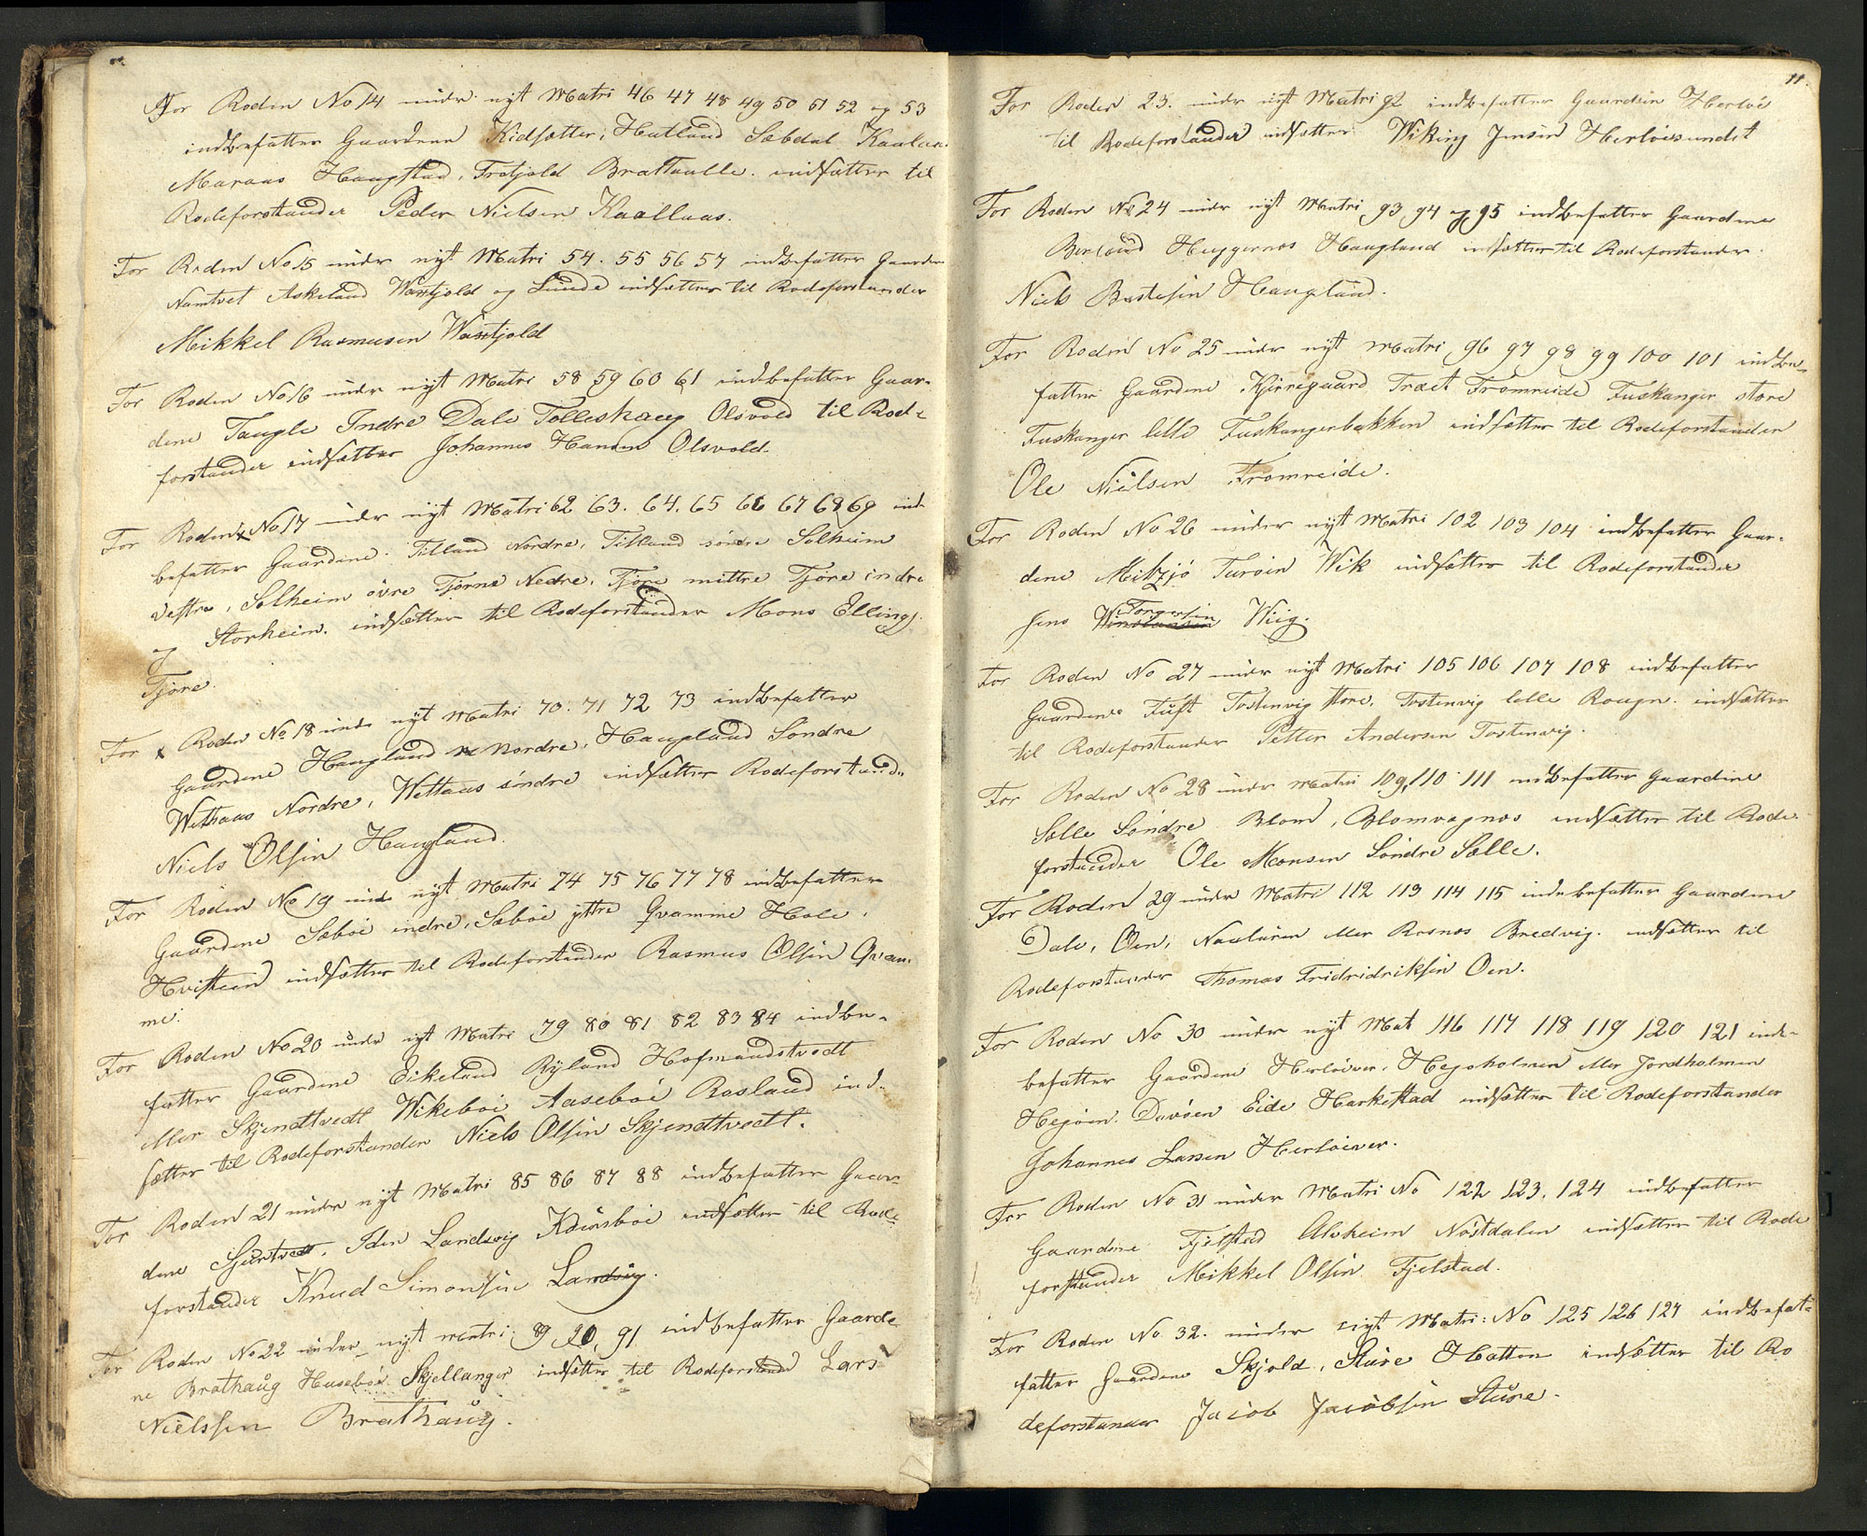 For Roden No 14 under nyt Matri 46 47 48 49 50 51 52 og 53
indbefatter Gaardene Kidsætter, Hatland Sæbdal Kaalaas
Maraas Haugstad, Trotjold Brattaule. indsætter til
Rodeforstander Peder Nielsen Kaallaas.
For Roden No 15 under nyt Matri 54. 55 56 57 indbefatter Gaarden
Namtvet Askeland Wastjold og Lunde indsætter til Rodeforstander
Mikkel Rasmusen Wastjold
For Roden No 16 under nyt Matri 58 59 60 61 indbefatter Gaar-
dene Taugle Indre Dale Tolleshaug Olsvold til Rode-
forstander indsætter Johannes Hansen Olsvold.
For Roden No 17 under nyt Matri 62 63. 64. 65 66 67 68 69 ind
befatter Gaardene. Titland Nordre, Titland söndre Solheim
Vestre, Solheim övre Tjörne Nedre, Tjöre mittre Tjöre indre
og Storheim. indsætter til Rodeforstander Mons Ellings.
Tjöre.
For Roden No 18 unde nyt Matri 70. 71 72 73 indbefatter
Gaardene Haugland Nordre, Haugland Söndre
Withaas Nordre, Wettaas söndre indsætter Rodeforstander
Niels Olsen Haugland.
For Roden No 19 unde nyt Matri 74 75 76 77 78 indbefatter
Gaardene Sæböe indre, Sæböe yttre Qvamme Hole,
Hvisteen indsætter til Rodeforstander Rasmus Olsen Qvam-
me.
For Roden No 20 under nyt Matri 79 80 81 82 83 84 indbe-
fatter Gaardene Eikeland Ryland Hofmandstvedt
eller Skjendtvedt Wikeböe Aaseböe Rosland ind-
sætter til Rodeforstander Niels Olsen Skjendtvedt.
For Roden 21 under nyt Matri 85 86 87 88 indbefatter Gaar-
dene Sjurtvedt, Iden Landsvig indsætter til Rode-
forstander Knud Simonsen Landsvig.
For Roden No 22 under nyt Matri 89 90, 91 indbefatter Gaarde
ne Brathaug Huseböe Skjellanger indsætter til Rodeforstander Lars
Nielssen Brathaug.
11.
For Roden 23. under nyt Matri 92 indbefatter Gaarden Herlöe
til Rodeforstander indsætter Wiking Jensen Herlöesundet
For Roden No 24 under nyt Matri 93 94 og 95 indbefatter Gaardene
Berland Heggernæs Haugland indsætter til Rodeforstander.
Niels Bastesen Haugland.
For Roden No 25 under nyt Matri 96 97 98 99 100 101 indbe-
fatter Gaardene Kjirregaard Træet Fromreide Fuskanger store
Fuskanger lille Fuskangerbakken indsætter til Rodeforstander
Ole Nielsen Fromreide.
For Roden No 26 under nyt Matri 102 103 104 indbefatter Gaar-
dene Mitzjö Turöen Wik indsætter til Rodeforstander
Jens Torgersen Wiig.
For Roden No 27 under nyt Matri 105 106 107 108 indbefatter
Gaardene Tuft Tostenvig store, Tostenvig lille Rongn. indsætter
til Rodeforstander Petter Andersen Tostenvig.
For Roden No 28 under Matri 109, 110 111 indbefatter Gaardene
Sælle Söndre Blom, Blomvagnes indsætter til Rode-
forstander Ole Monsen Söndre Sælle.
For Roden 29 under Matri 112 113 114 115 indebefatter Gaardene
Dale, Oen, Nautören eller Rosnæs Bredvig. indsætter til
Rodeforstander Thomas Fridridriksen Oen.
For Roden No 30 under nyt Mat 116 117 118 119 120 121 inde-
befatter Gaardene Herlöever. Hegoholmen eller Jordholmen
Hegöen. Davöen Eide Harkestad indsætter til Rodeforstander
Johannes Larsen Herlöever.
For Roden No 31 under Matri No 122 123. 124 indbefatter
Gaardene Fjelstad Alvheim Nöstdalen indsætter til Rode
forstander Mikkel Olsen Fjelstad.
For Roden No 32. under nyt Matri: No 125 126 127 indbefat-
fatter Gaardene Skjold, Sture Hatten indsætter til Ro
deforstander Jacob Jacobsen Sture.